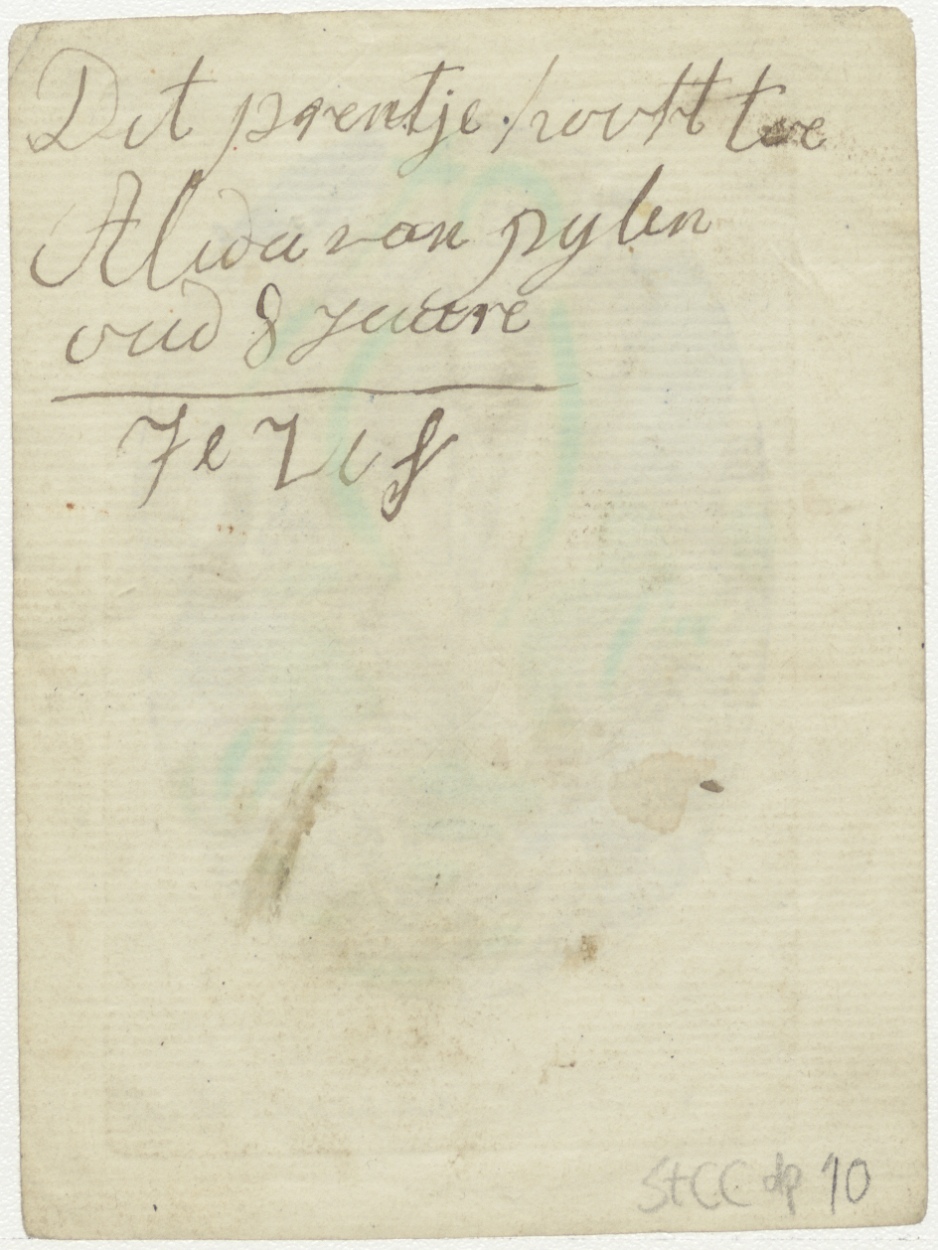 Dit prentje hoortt toe
Alida van pylen
oud 8 jaare
JeZus
StCC dp 10